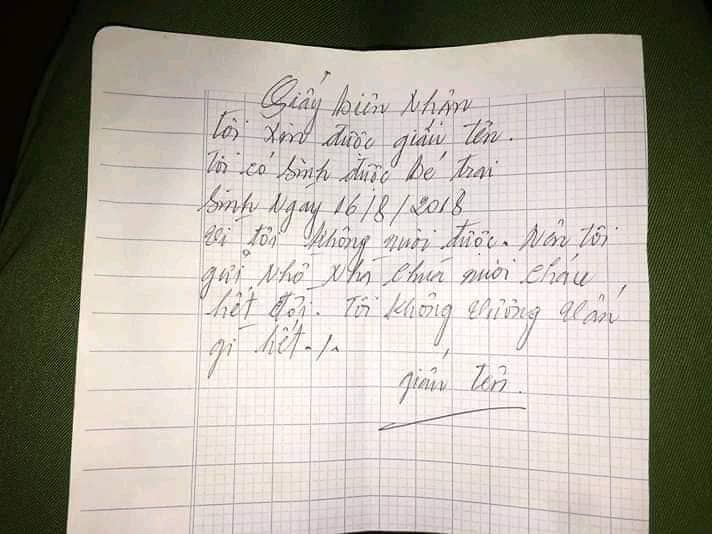 Giấy biên Nhận
Tôi xin được giấu tên.
Tôi có sinh được bé trai
Sinh Ngày 16/8/2018
Vì tôi không nuôi được. Nên tôi
gửi, nhờ nhà chùa nuôi cháu,
hết đời. Tôi không vương vấn,
gì hết./.
giấu tên.